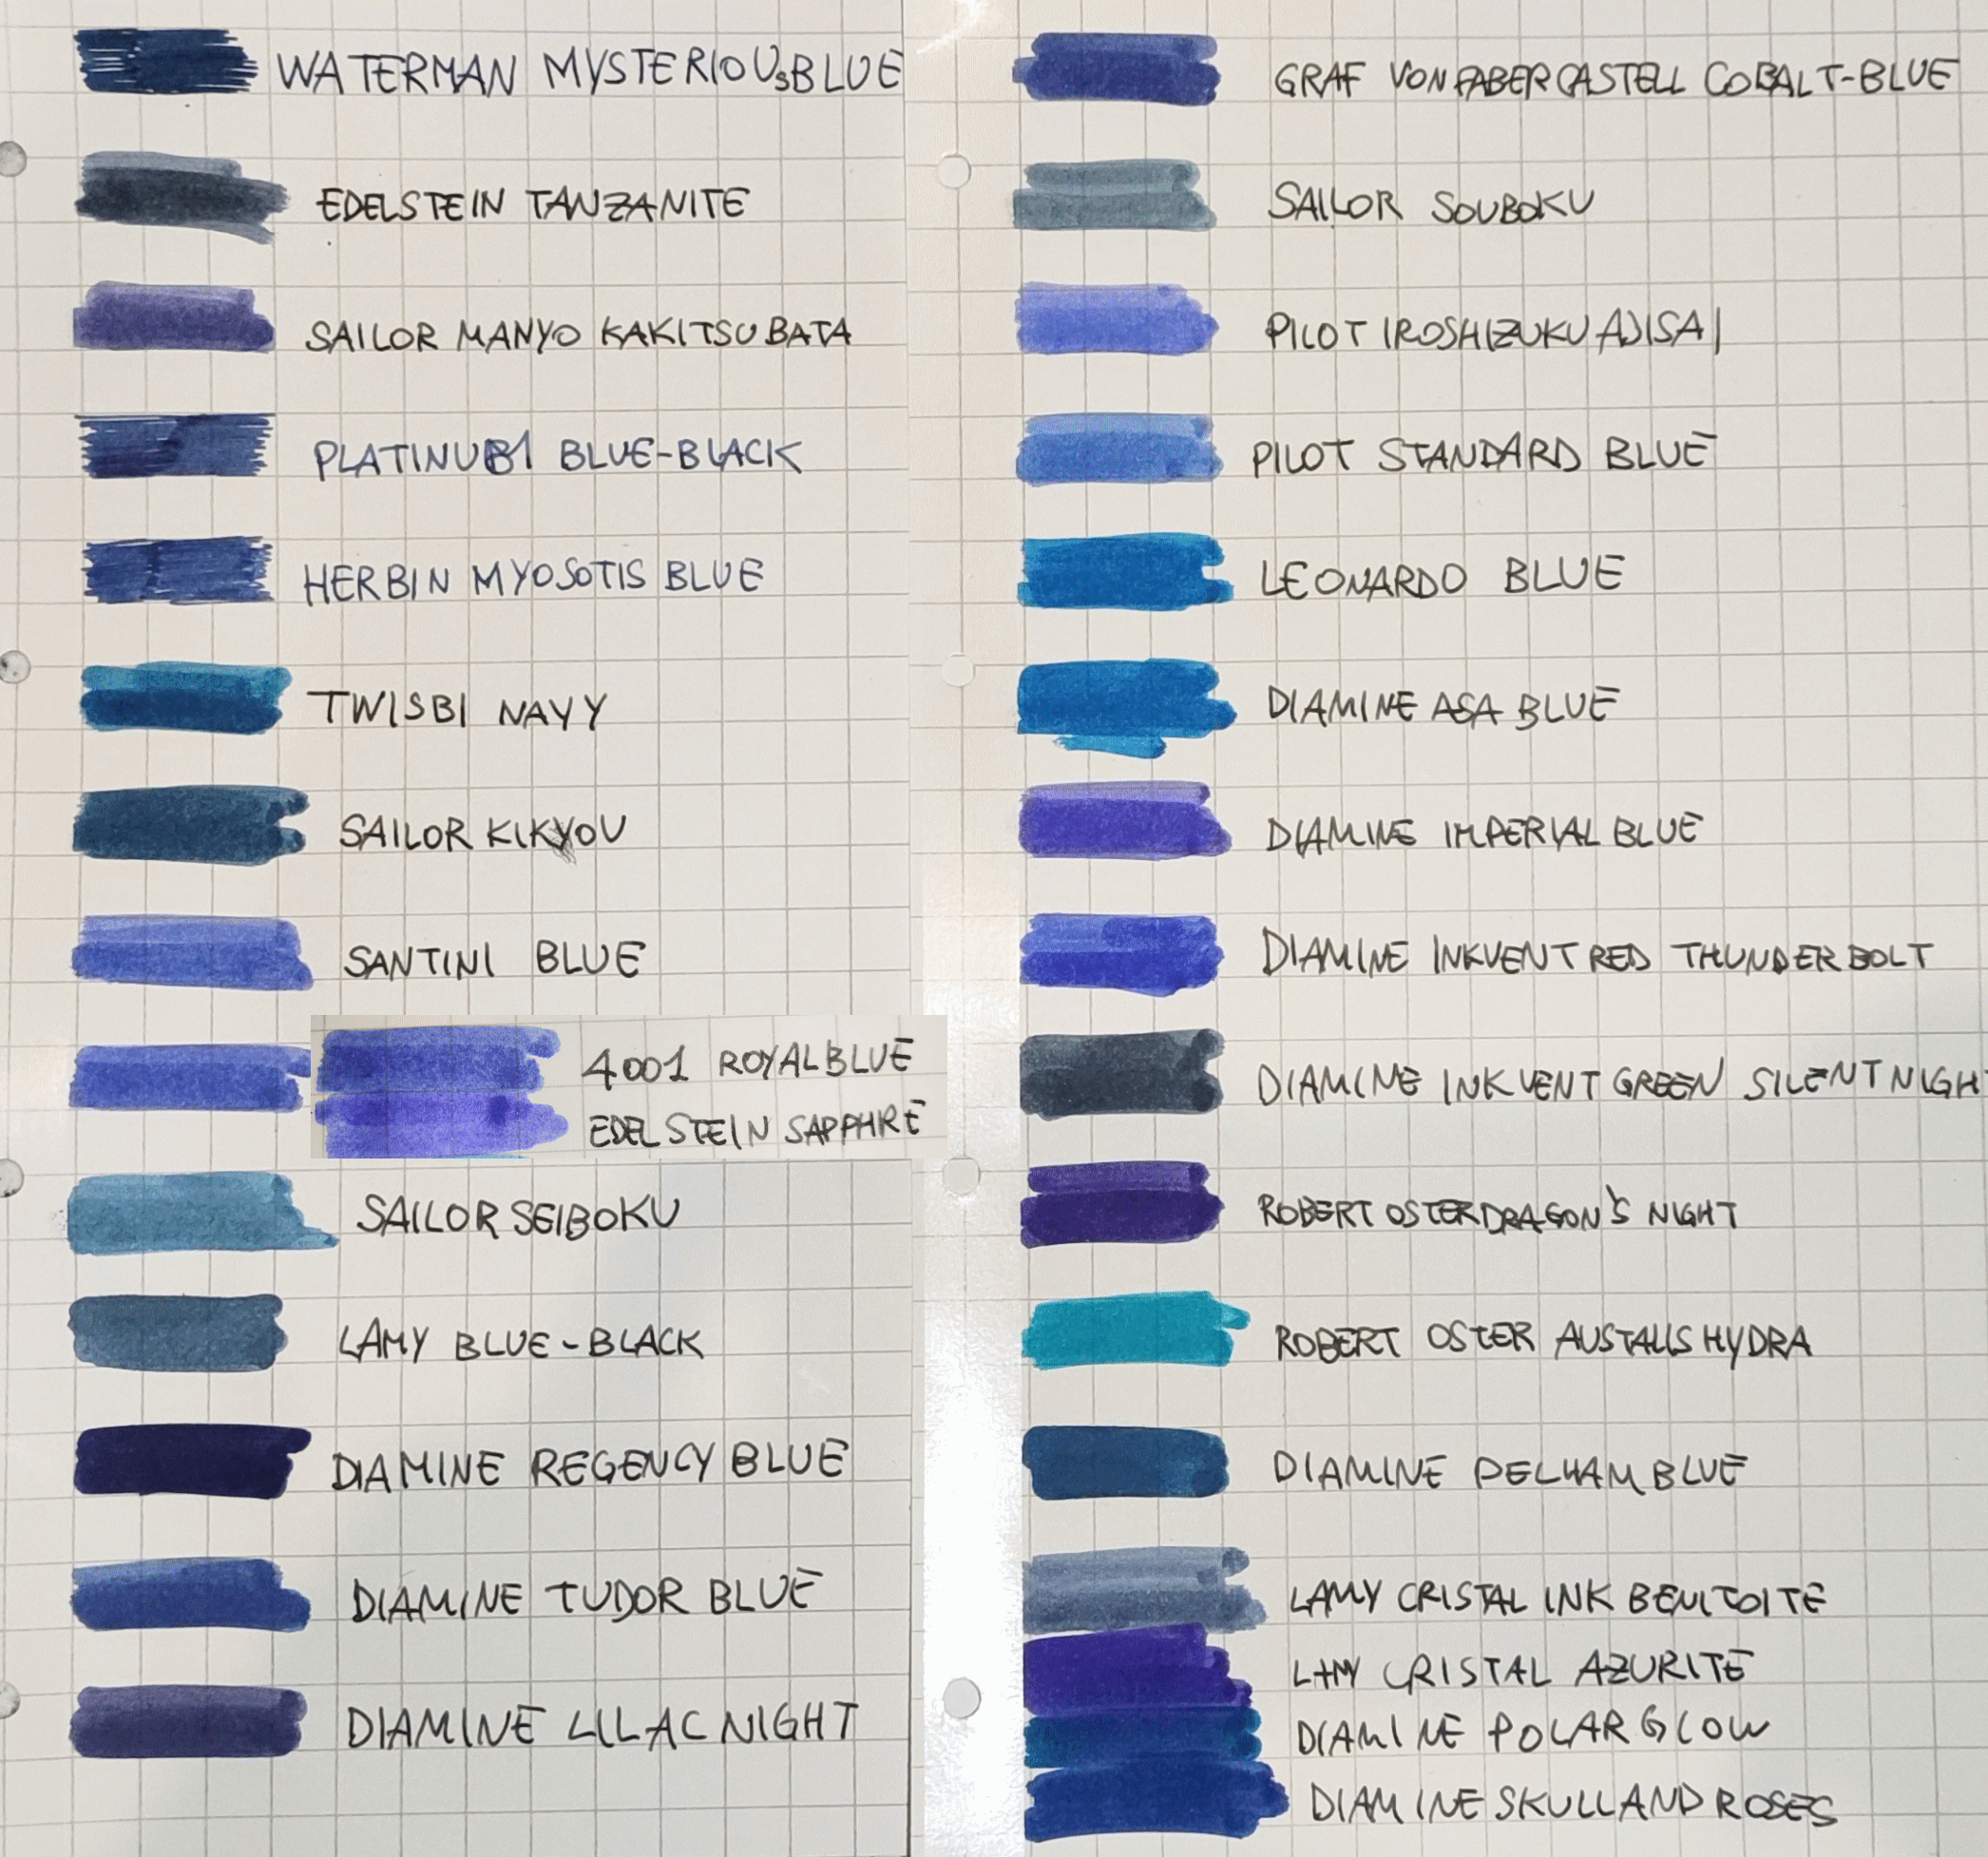 WATERMAN MYSTERIOUS BLUE
EDELSTEIN TANZANITE
SAILOR MANYO KAKITSUBATA
PLATINUM BLUE-BLACK
HERBIN MYOSOTIS BLUE
TWISBI NAVY
SAILOR KIKYOU
SANTINI BLUE
4001 ROYAL BLUE
EDELSTEIN SAPPHRE
SAILOR SEIBOKU
LAMY BLUE-BLACK
DIAMINE REGENCY BLUE
DIAMINE TUDOR BLUE
DIAMINE LILAC NIGHT
GRAF VON FABER CASTELL COBALT-BLUE
SAILOR SOUBOKU
PILOT IROSHIZUKU AJISAI
PILOT STANDARD BLUE
LEONARDO BLUE
DIAMINE ASA BLUE
DIAMINE IMPERIAL BLUE
DIAMINE INKVENT RED THUNDERBOLT
DIAMINE INKVENT GREEN SILENT NIGH
ROBERT OSTER DRAGON'S NIGHT
ROBERT OSTER AUSTALIS HYDRA
DIAMINE PELHAM BLUE
LAMY CRISTAL INK BENITOITE
LAMY CRISTAL AZURITE
DIAMINE POLAR GLOW
DIAMINE SKULL AND ROSES